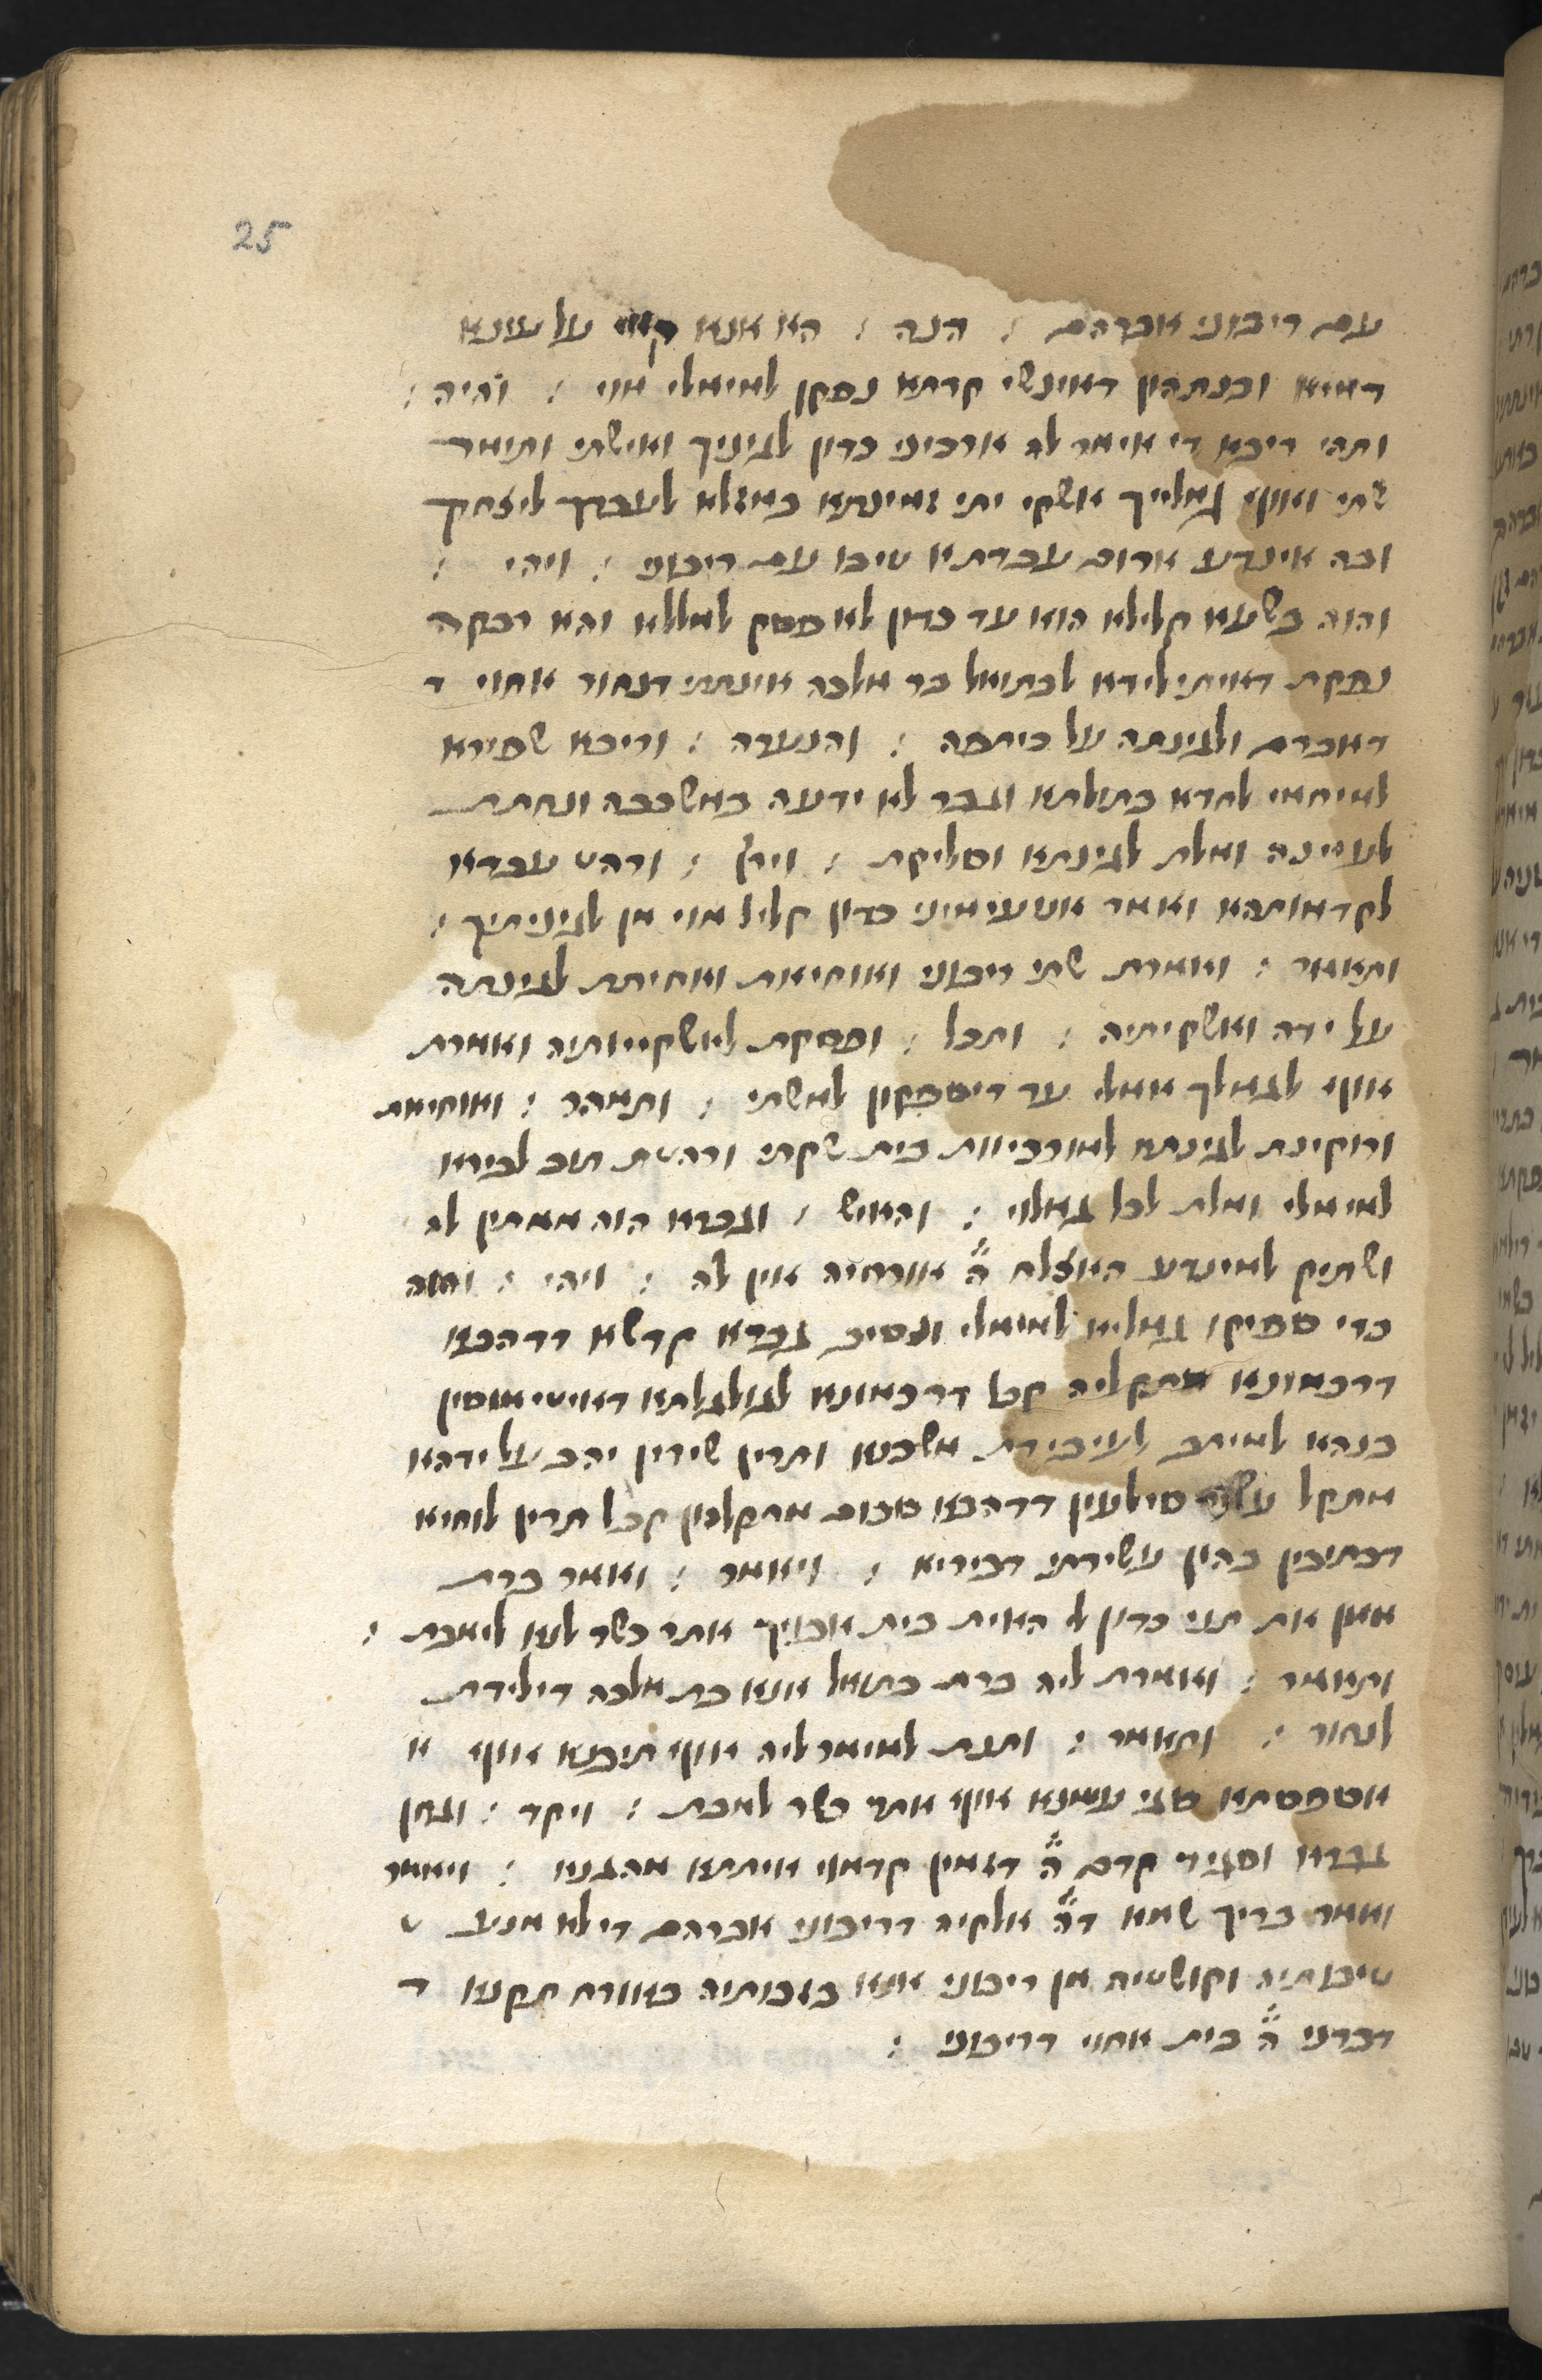 25
עם ריבוני אברהם : הנה : הא אנא קאי על עינא
דמיא ובנתהון דאינשי קרתא נפקן לאימלי מוי : והיה :
ותהי ריבא די אימר לה ארכיני כדון לגיניך ואישתי ותימר
שתי ואוף גמלייך אשקי יתה זמינתא במזלא לעבדך ליצחק
ובה אינדע ארום עבדתא טיבו עם ריבוני : ויהי :
והוה בשעא קלילא הוא עד כדון לא פסק למללא והא רבקה
נפקת דאיתילידא לבתואל בר מלכה אינתתי דנחור אחוי ד
דאברם ולגינתה על כיתפה : והנערה : וריבא שפירא
למיחמי לחדא בתולתא וגבר לא ידעה במשכבה ונחתת
לעיינה ומלת לגינתא וסליקת : וירץ : ורהט עבדא
לקדמותהא ואמר אטעימיני כדון קליל מוי מן לגיניתיך :
ותאמר : ואמרת שתי ריבוני ואוחיאת ואחיתת לגינתה
על ידה ואשקיתיה : ותכל : ופסקת לאשקיותיה ואמרת
אוף לגמלך אמלי עד דיספקון למשתי : ותמהר : ואוחיאת
ורוקינת לגינתא לאורביות בית שקתי ורהטת תוב לבירא
לאימלי ומלת לכל גמלוי : והאיש : וגברא הוה ממתין לה
ושתיק למינדע האצלח ה' אורחיה אין לה : ויהי : והוה
כדי ספיקו גמליא לאימלי ונסיב גברא קדשא דדהבא
דרכמונא מתקליה קבל דרכמונא לגולגלתא דאיטימוסין
בנהא למיתב לעיבידת משכנא ותרין שירין יהב על ידהא
מתקל עשר סילעין דדהבא סכום מתקלהון קבל תרין לוחיא
דכתיבין בהון עשירתי דביריא : ויאמר : ואמר ברת
מאן את תני כדון לי האית בית אבויך אתר כשר לנא למבת :
ותאמר : ואמרת ליה ברת בתואל אנא בר מלכה דילידת
לנחור : ותאמר : ותנת למימר ליה אוף תיבנא אוף א
אספסתא סגי עמנא אוף אתר כשר למבת : ויקד : וגחן
גברא וסגיד קדם ה' דזמין קדמוי איתתא מהגניא : ויאמר
ואמר בריך שמא דה' אלקיה דריבוני אברהם די לא מנע ט
טיבותיה וקושטיה מן ריבוני אנא בזכותיה באורח תקנא ד
דברני ה' בית אחוי דריבוני :